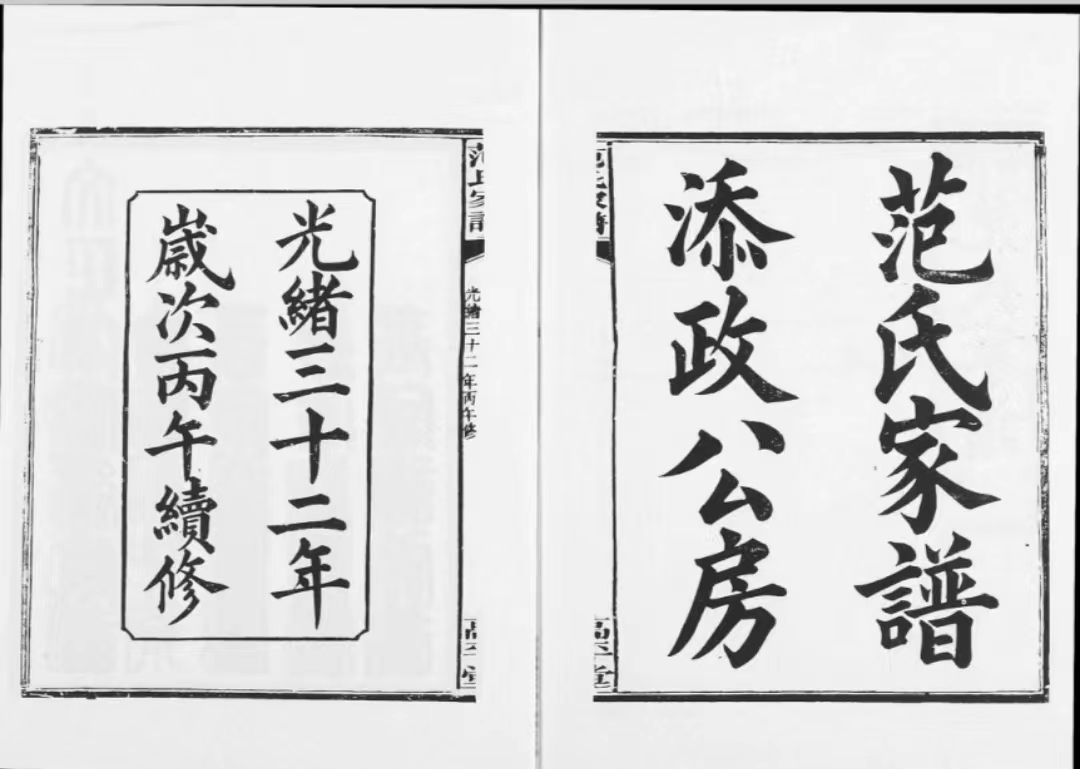 范氏家譜
添政公房
范氏家譜
光緒三十二年丙午修
光緒三十二年
歲次丙午續修